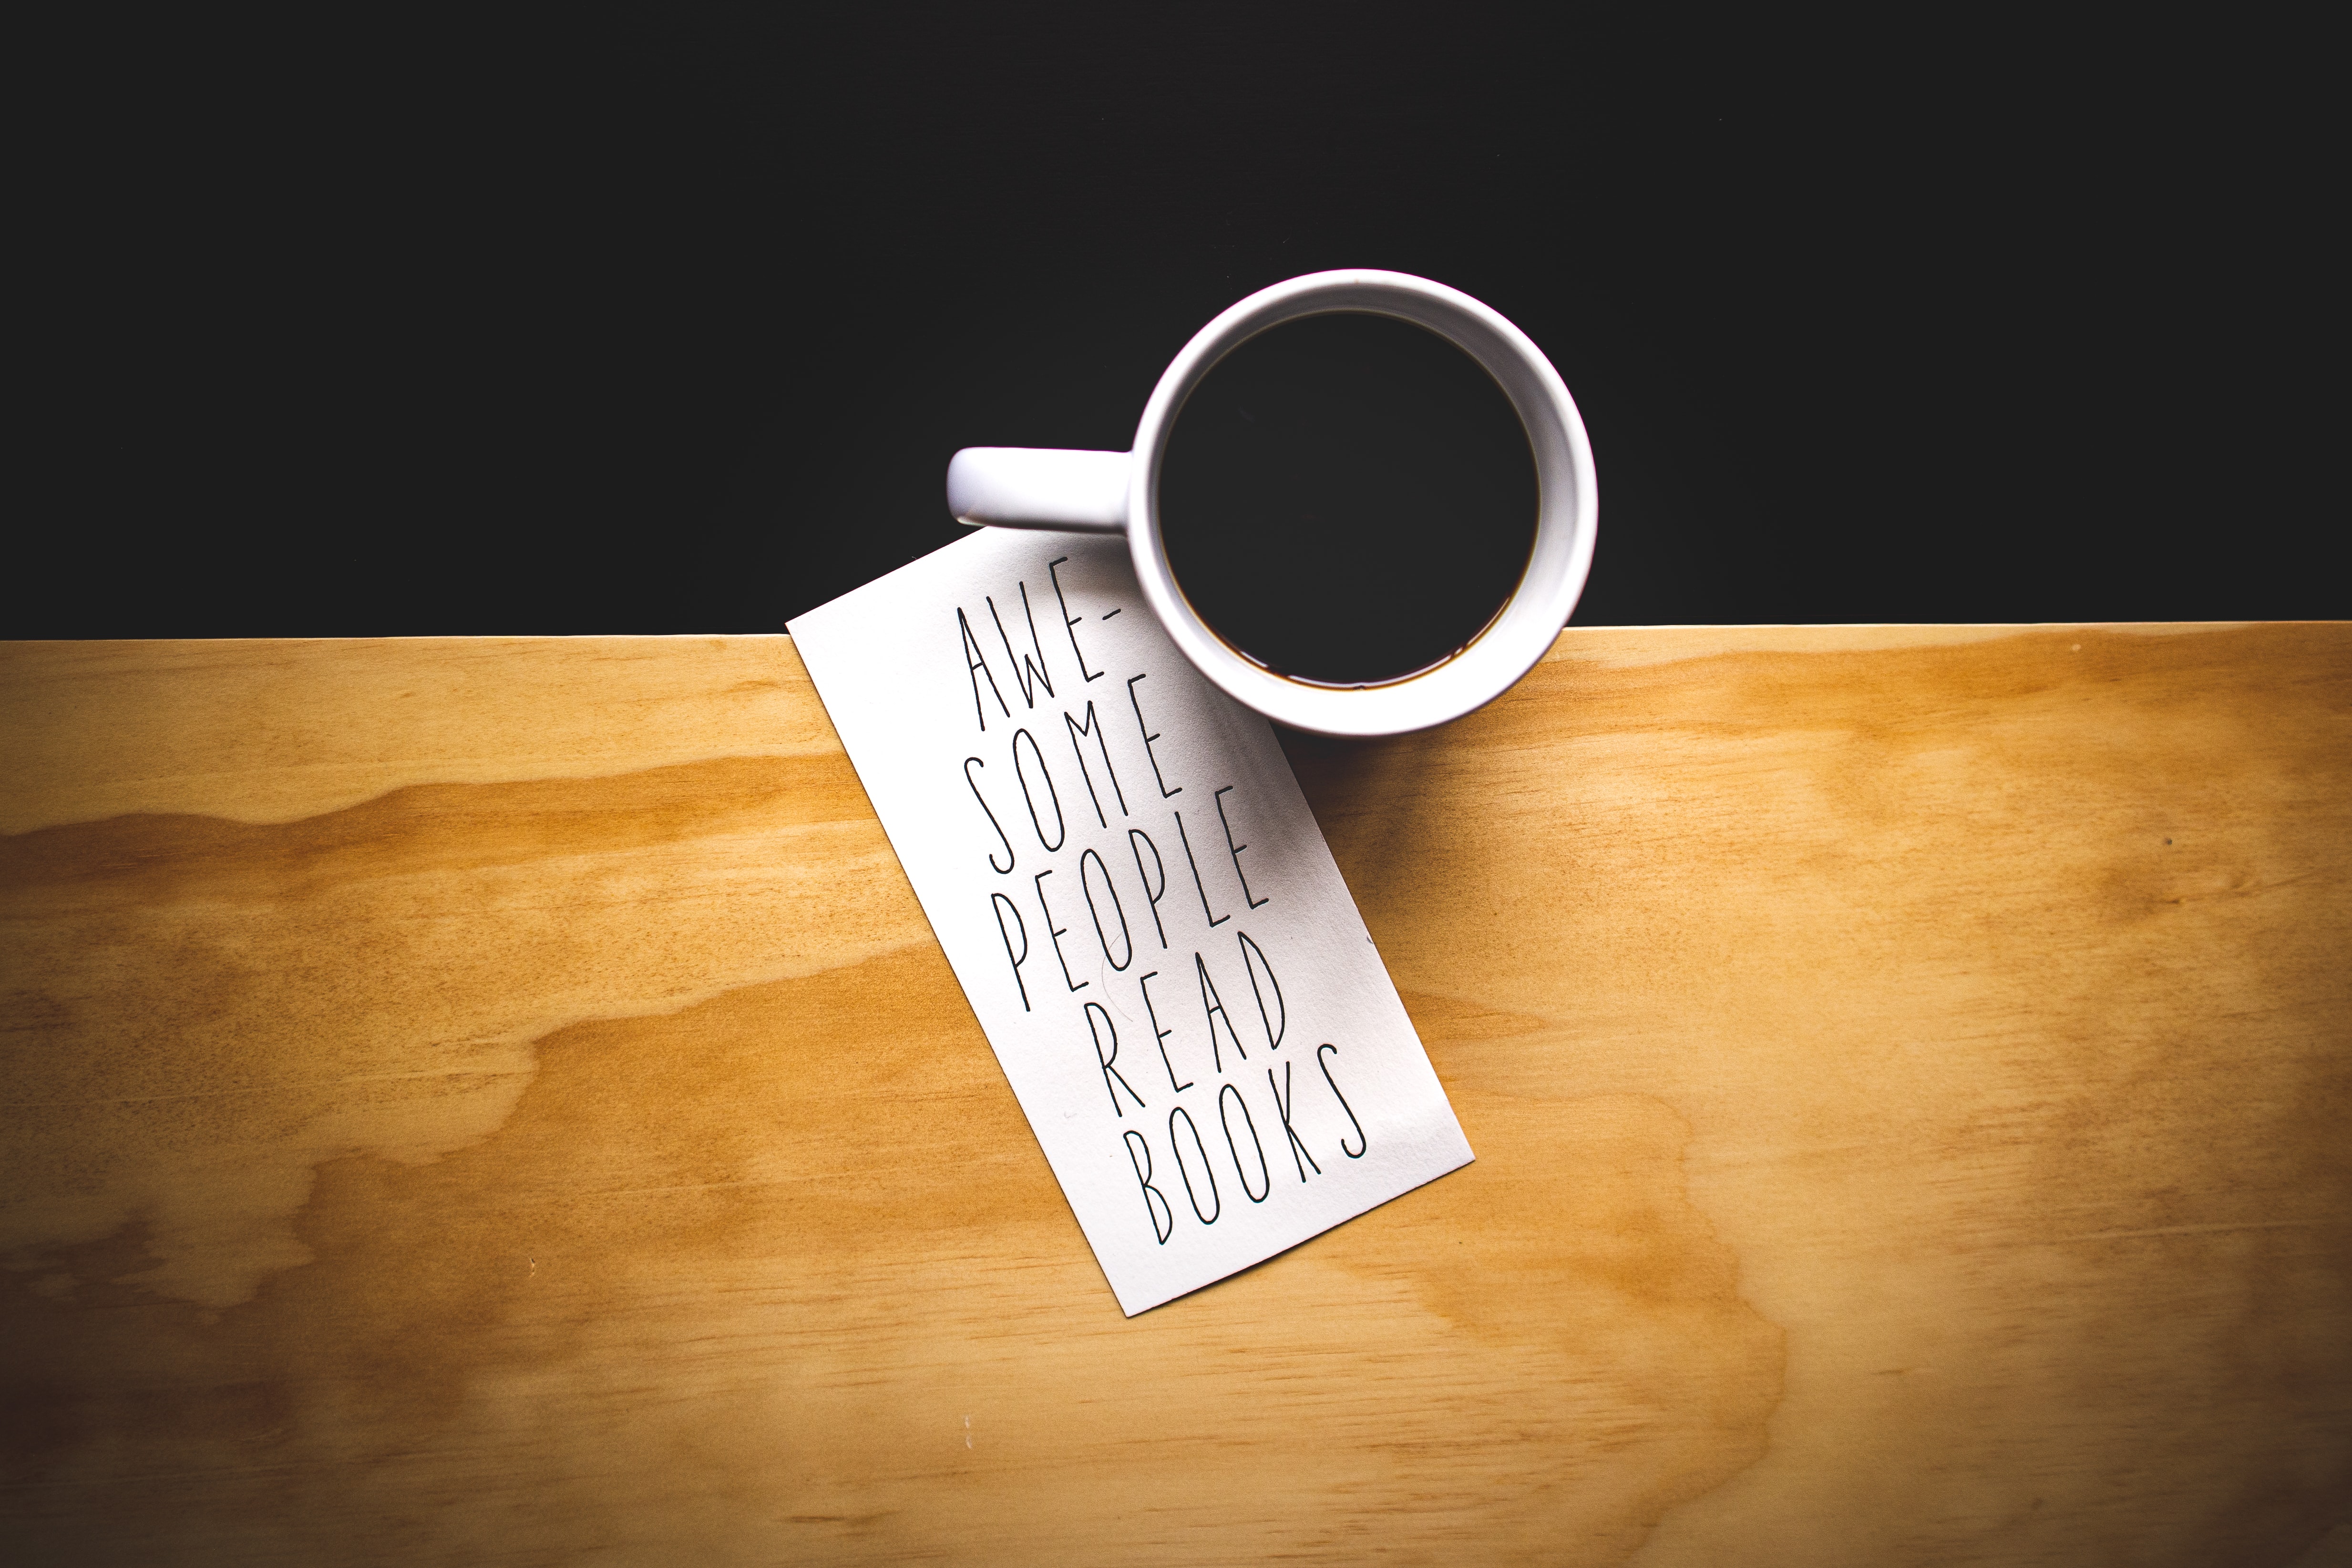 AWE-
SOME
PEOPLE
READ
BOOKS